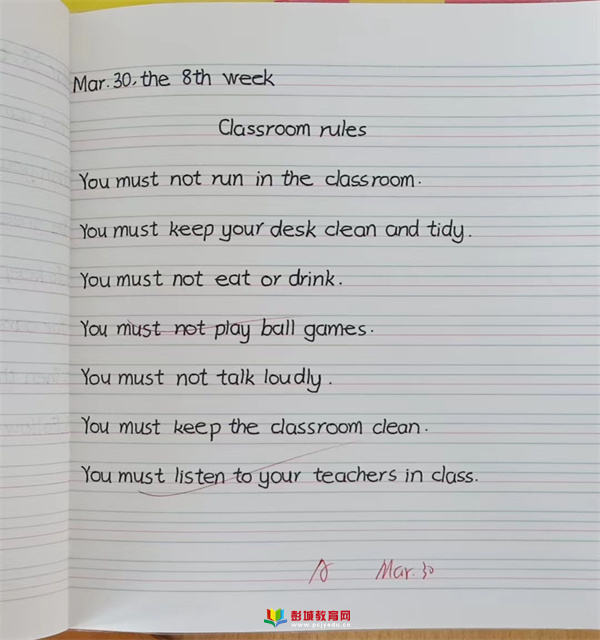 Mar. 30, the 8th week
Classroom rules
You must not run in the classroom.
You must keep your desk clean and tidy.
You must not eat or drink.
You must not play ball games.
You must not talk loudly.
You must keep the classroom clean.
You must listen to your teachers in class.
A Mar. 30
彭城教育网
www.pcjyedu.cn